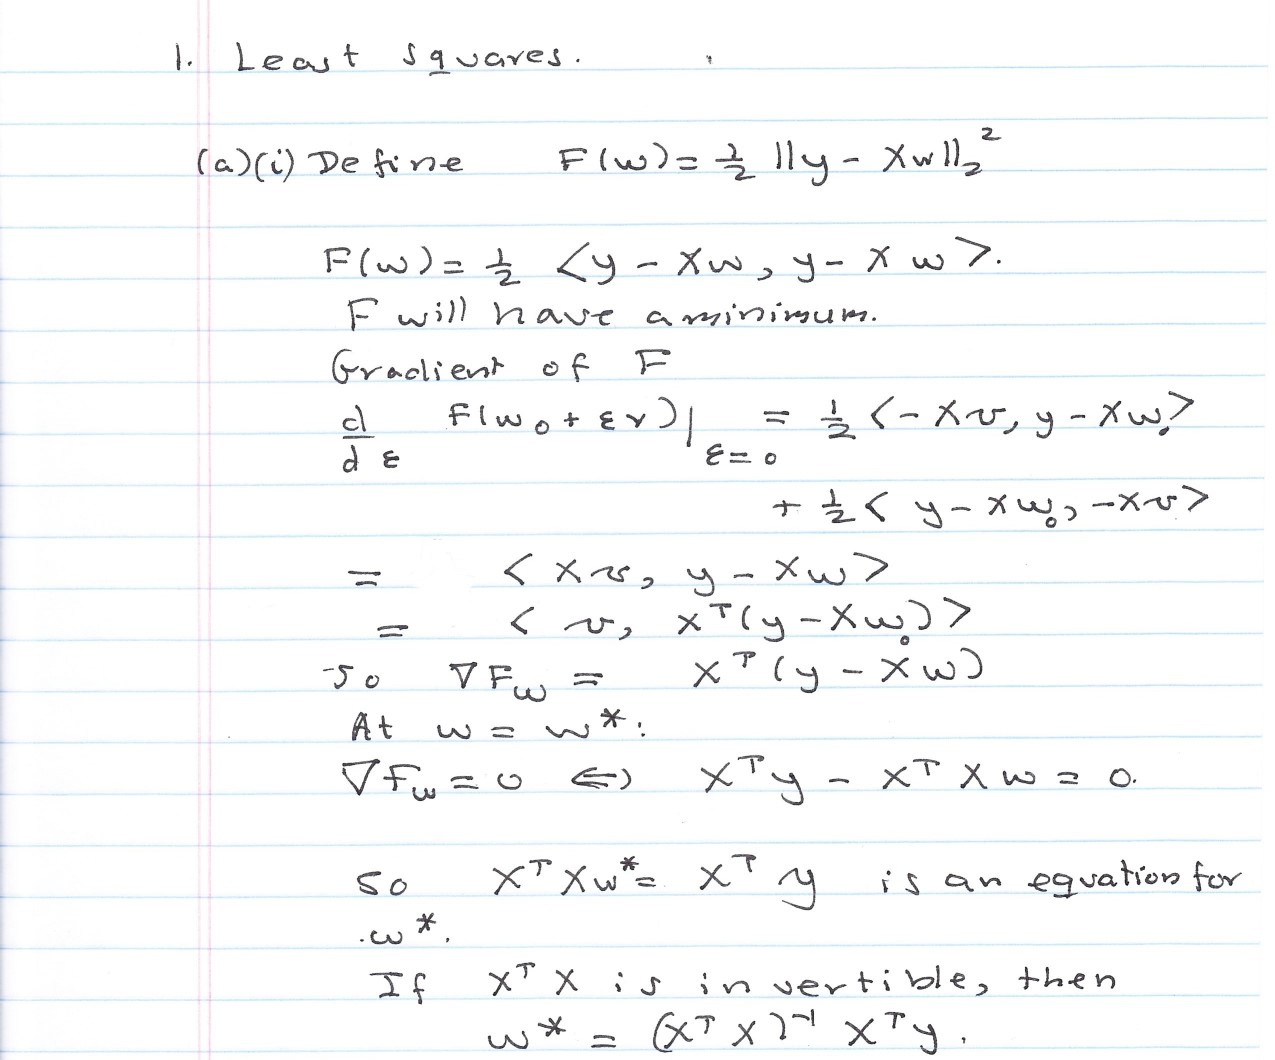 1. Least squares.
(a)(i) Define F(w) = ½ ||y - Xw||₂²
F(w) = ½ <y - Xw, y - Xw>.
F will have a minimum.
Gradient of F
d/dε F(w₀ + εv)|ε=0 = ½ <-Xv, y - Xw₀>
+ ½ < y - Xw₀, -Xv>
= < Xv, y - Xw>
= < v, Xᵀ(y - Xw₀)>
So ∇F_w = Xᵀ(y - Xw)
At w = w*:
∇F_w = 0 ⇔ Xᵀy - XᵀXw = 0.
So XᵀXw* = Xᵀy is an equation for
w*.
If XᵀX is invertible, then
w* = (XᵀX)⁻¹ Xᵀy.